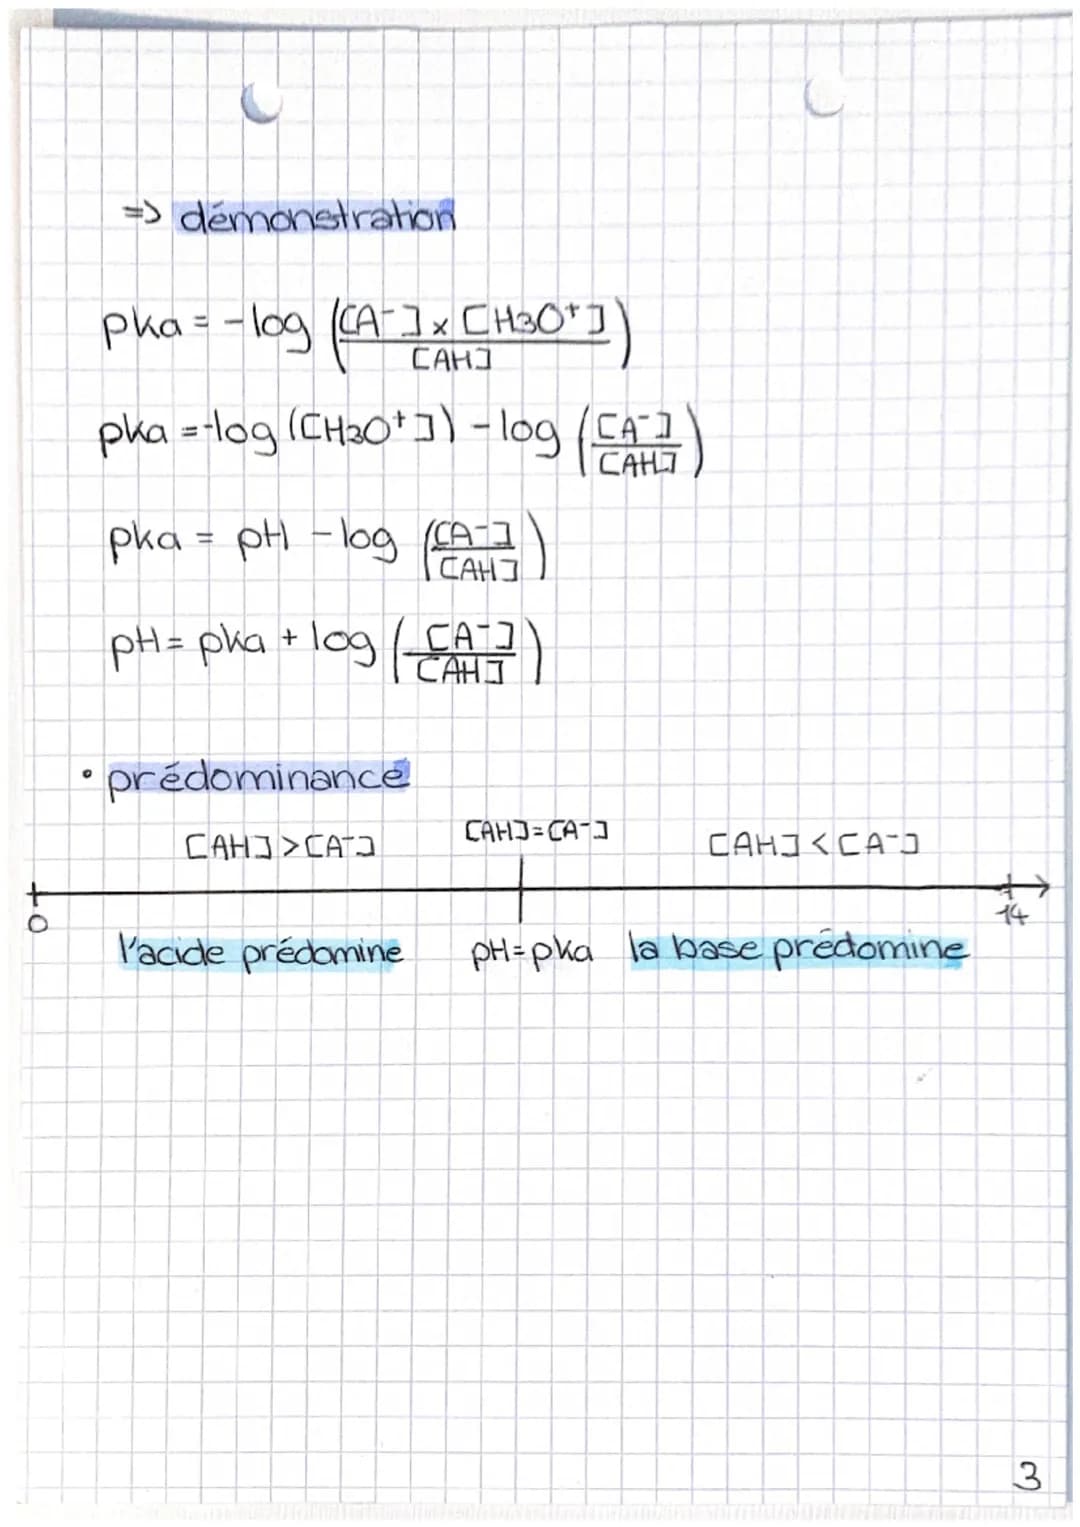 => démonstration
pka = -log ([A⁻] x [H3O⁺] / [AH])
pka = -log ([H3O⁺]) - log ([A⁻] / [AH])
pka = pH - log ([A⁻] / [AH])
pH = pka + log ([A⁻] / [AH])
• prédominance
[AH] > [A⁻] [AH] = [A⁻] [AH] < [A⁻]
0 14
l'acide prédomine pH = pka la base prédomine
3